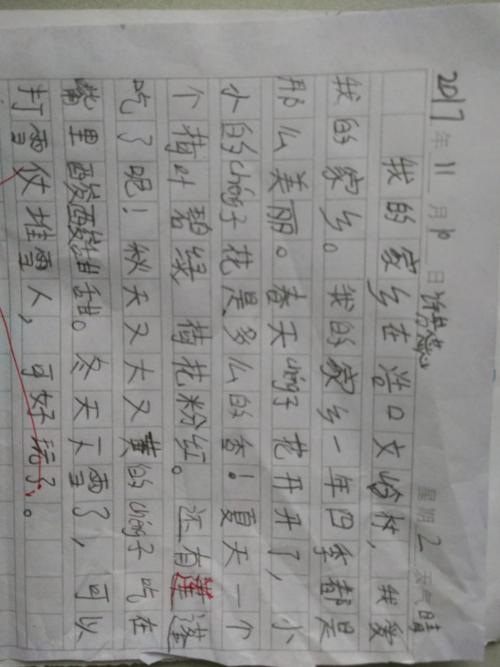 2017年11月10日 星期2 天气晴
我的家乡在浩口文岭村,我爱
我的家乡。我的家乡一年四季都是
那么美丽。春天chéng子花开开了,小
小的chéng子花是多么的香!夏天一个
个荷叶碧绿 荷花粉红。还有莲蓬
吃了呢!秋天又大又黄的chéng子吃在
嘴里酸酸甜甜。冬天下雪了,可以
打雪仗堆雪人,可好玩了。